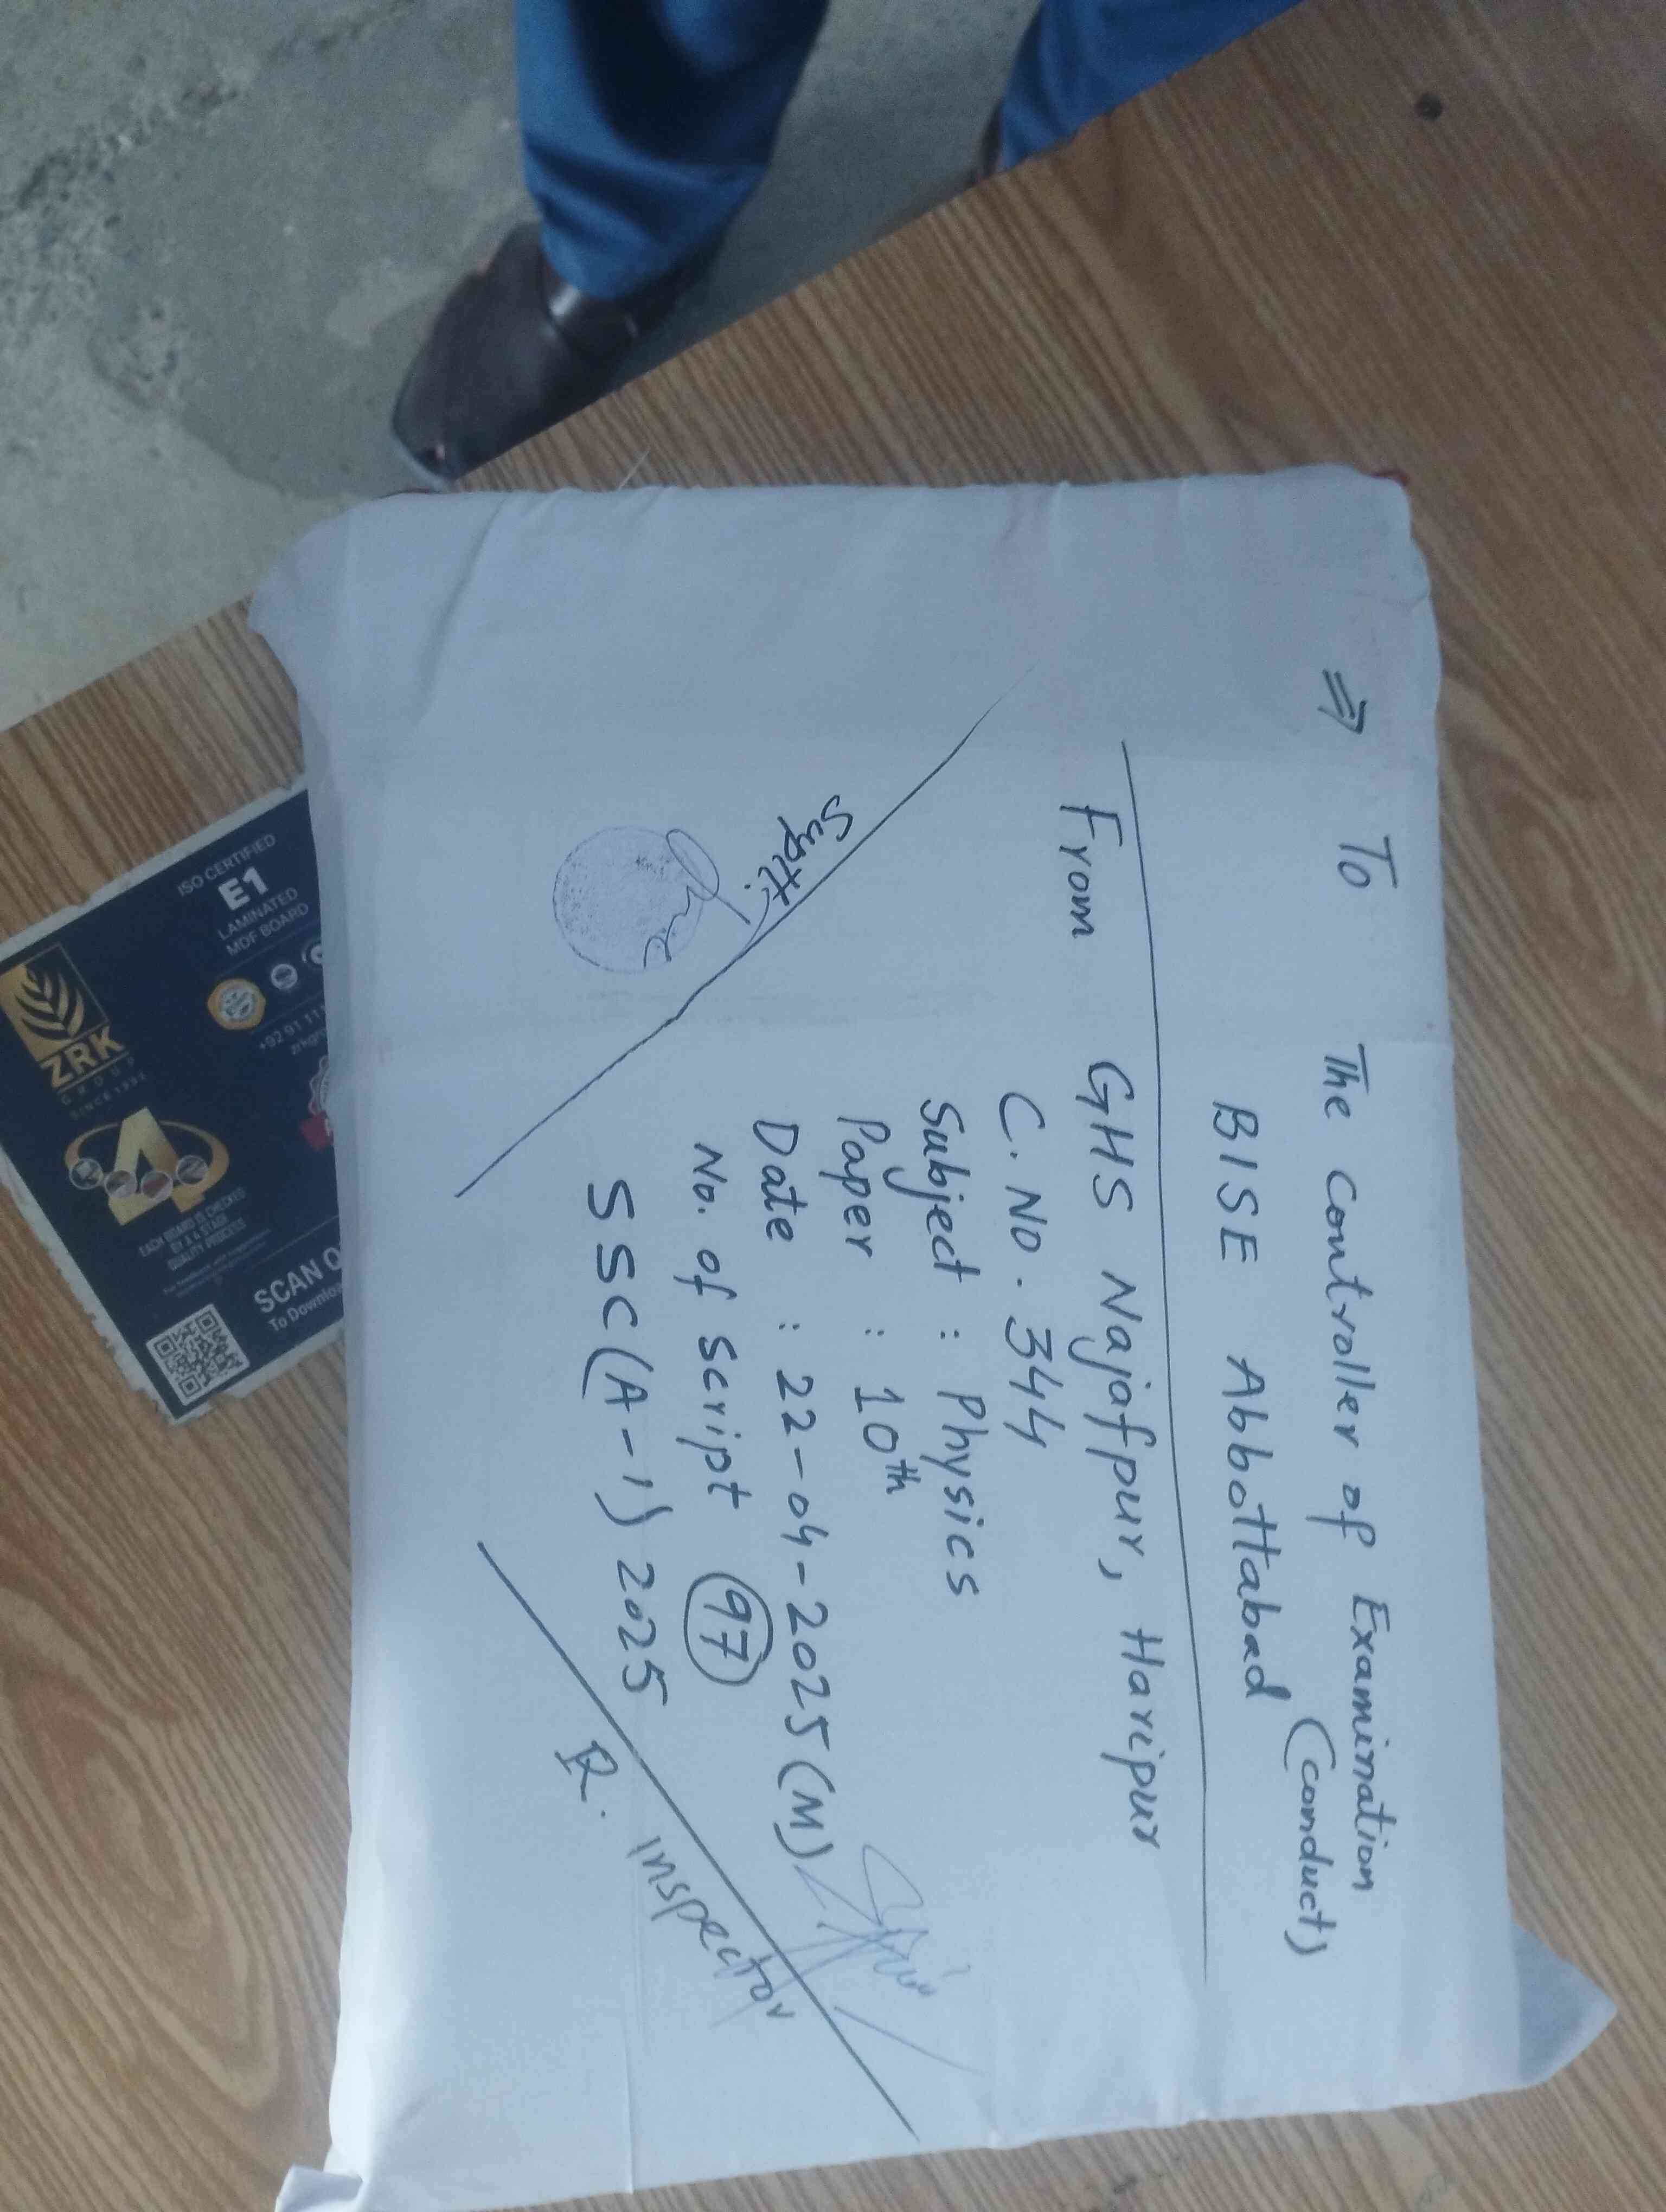 ⇒ To The Controller of Examination
(Conduct)
BISE Abbottabad
From GHS Najafpur, Haripur
C. No. 344
Subject : Physics
Paper : 10th
Date : 22-04-2025(M)
No. of script 97
SSC(A-1) 2025
Suptt.
R. Inspector
ISO CERTIFIED
E1
LAMINATED
MDF BOARD
+92 91 11
ZRK
GROUP
SINCE 1991
4
EACH BOARD IS CHECKED
BY A 4 STAGE
QUALITY PROCESS
SCAN Q
To Downloa